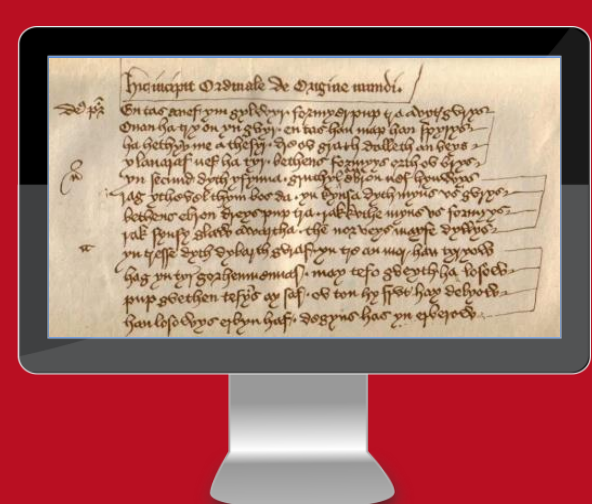 Hic incipit Ordinale de Origine mundi.
En tas a nef ym gylwyr formyer pup tra a vyt gvrys
Onan ha try on yn gvyr en tas han map han spyrys
ha hethyw me a thesyr dre ov grath dalleth an beys
y lauaraf nef ha tyr bethens formyys orth ov brys
yn secund dyth y fynna gruthyl ebron nef hynwys
rag ythevel thym bos da yn kynsa dyth myns vs gvrys
bethens ebron dreys pup tra rak kuthe myns vs formyys
rak synsy glaw awartha the nor veys may fe dyllys
yn tresse dyth dybarth gvraf yn tre an mor han tyryow
hag yn tyr gorhenmennaf may tefo gveyth ha losow
pup gvethen tefyns ay saf ov ton hy frut hay delyow
han losowys erbyn haf degyns has yn erberow